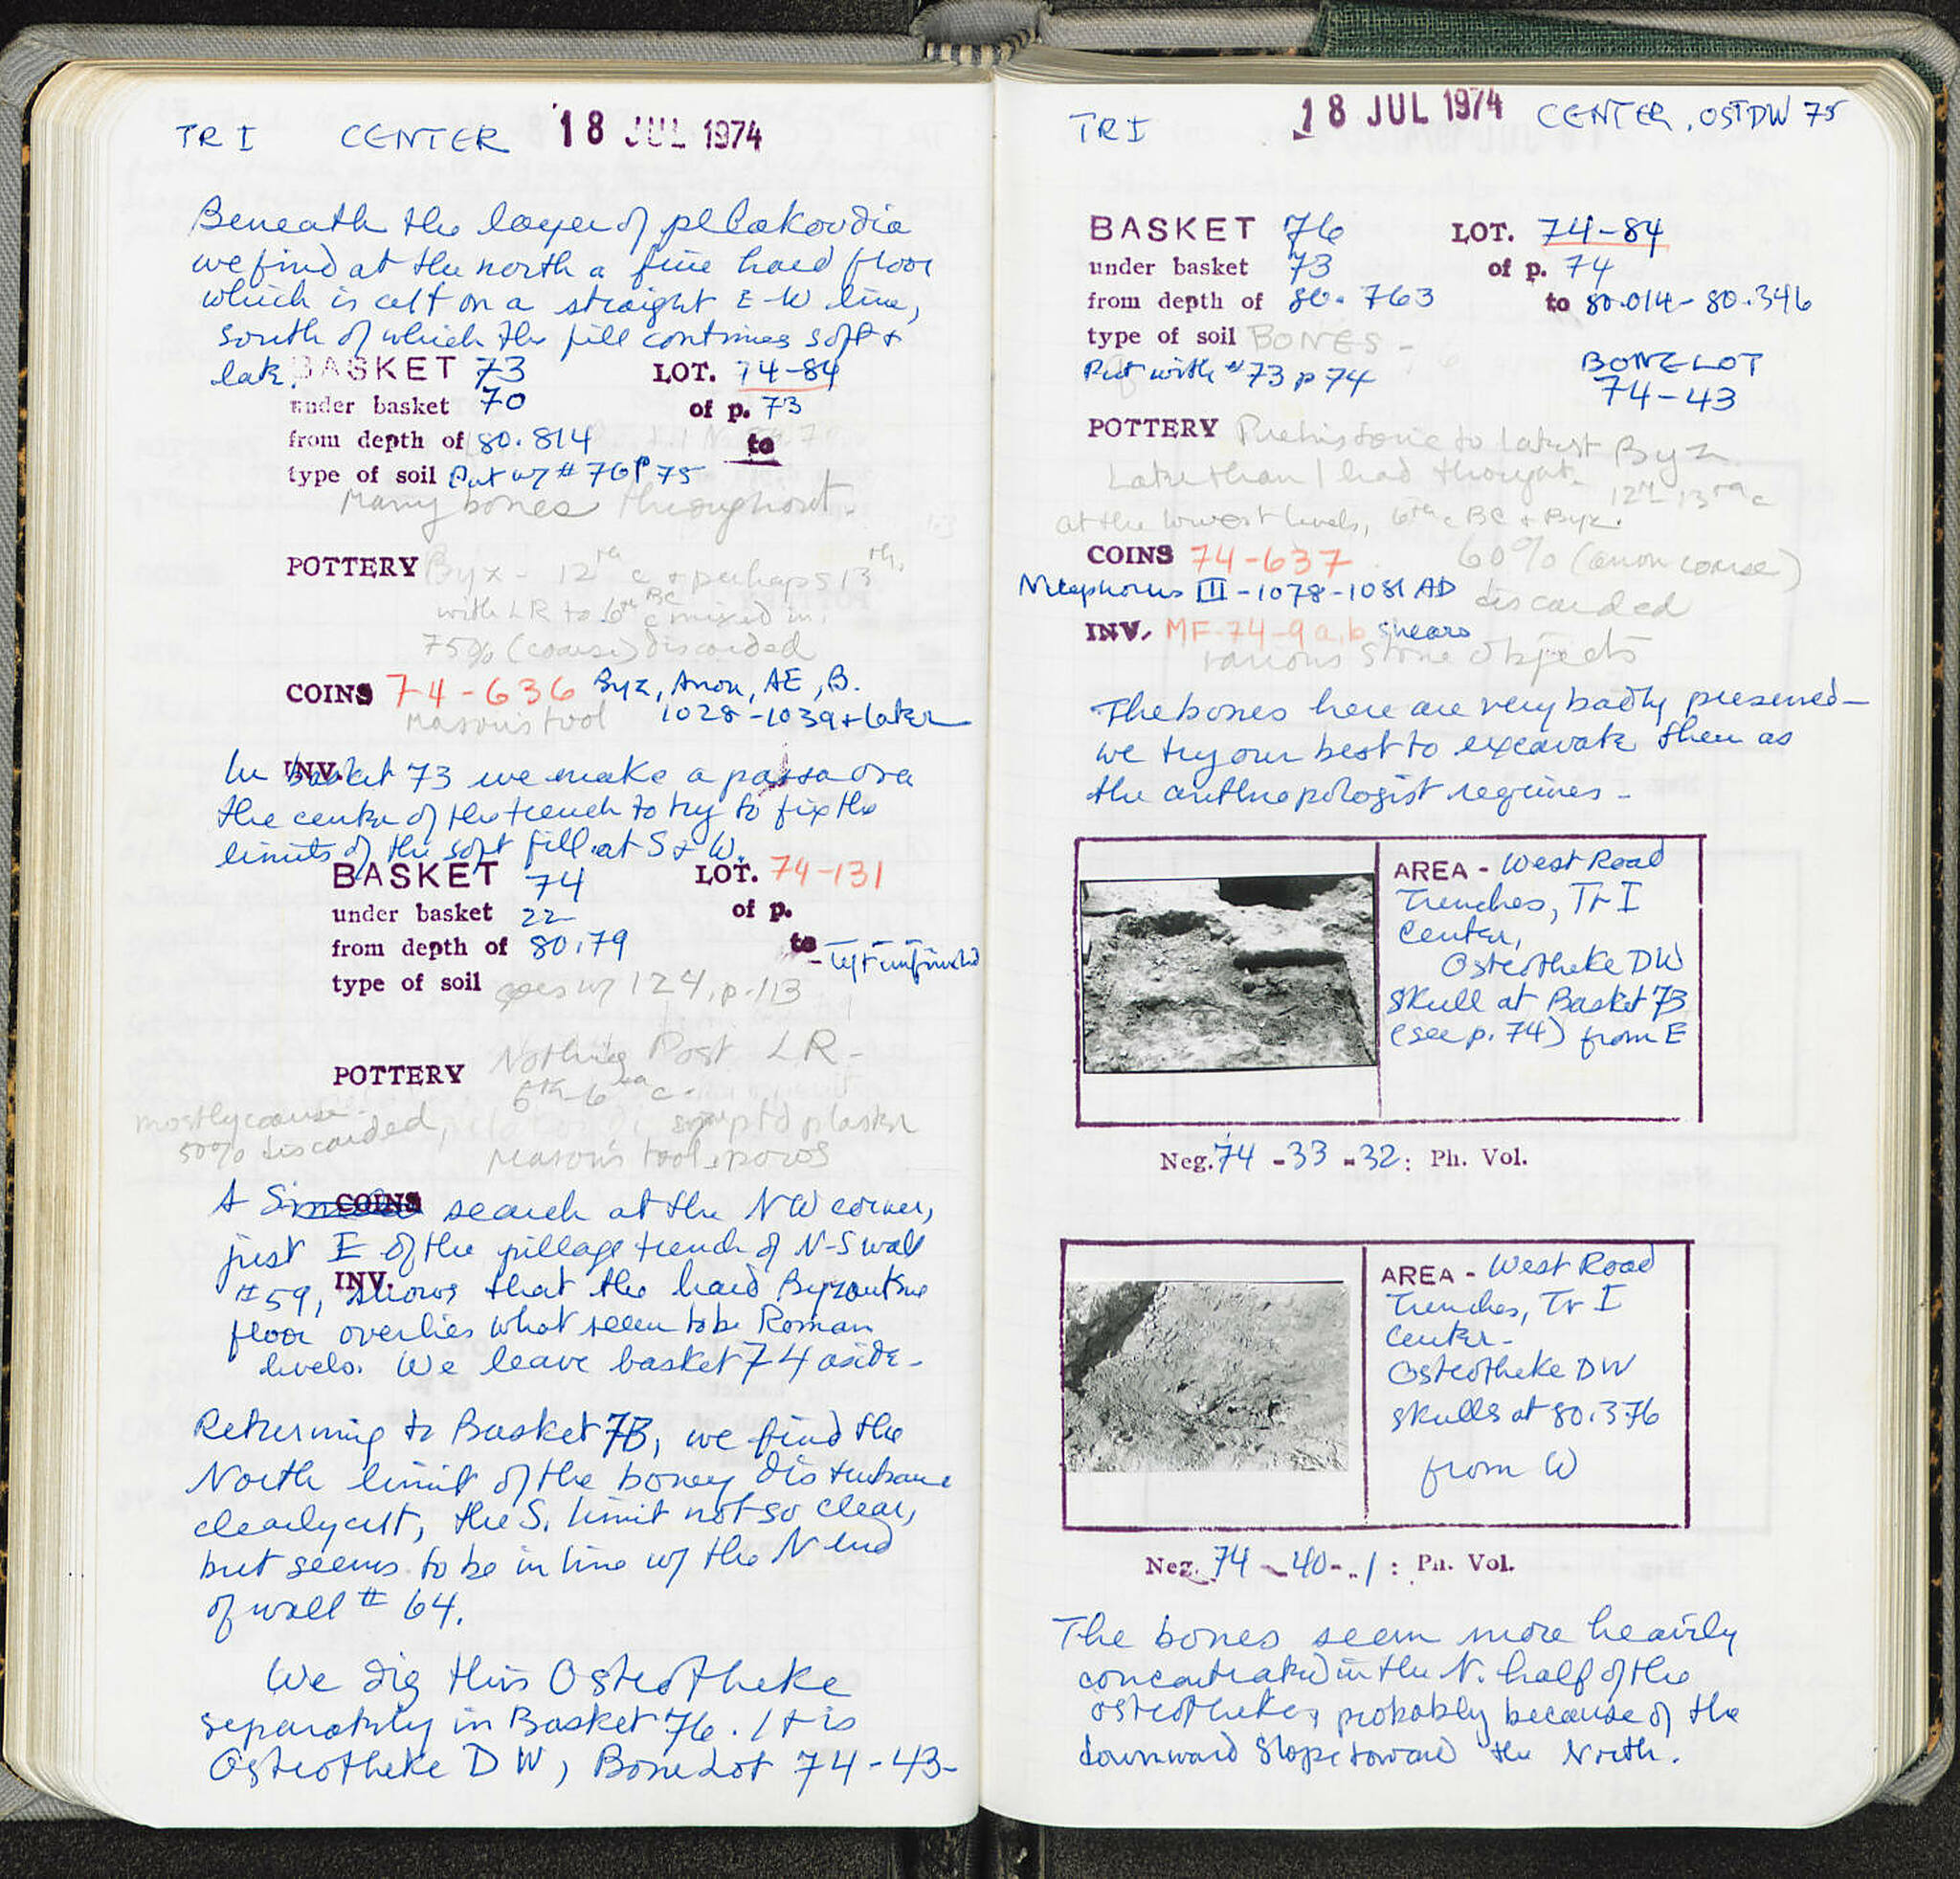 TR I CENTER 18 JUL 1974
Beneath the layer of plakoudia
we find at the north a fine hard floor
which is cut on a straight E-W line,
south of which the fill continues soft +
late.
BASKET 73 LOT. 74-84
under basket 70 of p. 73
from depth of 80.814 to
type of soil Put w/ #76 p 75
Many bones throughout.
POTTERY Byz - 12th c + perhaps 13th,
with LR to 6th c BC mixed in.
75% (coarse) discarded
COINS 74-636 Byz, Anon, AE, B.
Mason's tool 1028-1039 + later
INV.
In basket 73 we make a pass over
the center of the trench to try to fix the
limits of the soft fill at S + W.
BASKET 74 LOT. 74-131
under basket 22 of p.
from depth of 80.79 to - left unfinished
type of soil goes w/ 124, p. 113
POTTERY Nothing Post LR -
5th-6th c.
mostly coarse
50% discarded, ptd plaster
Mason's tool, poros
COINS
A search at the NW corner,
just E of the pillage trench of N-S wall
INV.
#59, shows that the hard Byzantine
floor overlies what seem to be Roman
levels. We leave basket 74 aside -
Returning to Basket 73, we find the
North limit of the boney disturbance
clearly cut, the S. limit not so clear,
but seems to be in line w/ the N end
of wall # 64.
We dig this Osteotheke
separately in Basket 76. It is
Osteotheke D W, Bone Lot 74-43-
TR I 18 JUL 1974 CENTER, OST DW 75
BASKET 76 LOT. 74-84
under basket 73 of p. 74
from depth of 80.763 to 80.014 - 80.346
type of soil BONES -
Put with #73 p 74 BONE LOT
74-43
POTTERY Prehistoric to latest Byz.
Later than I had thought. 12th-13th c
at the lowest levels, 6th c BC + Byz.
COINS 74-637 60% (anon coarse)
Nicephorus III - 1078-1081 AD discarded
INV. MF-74-9 a,b shears
various stone objects
The bones here are very badly preserved -
we try our best to excavate them as
the anthropologist requires -
AREA - West Road
Trenches, Tr I
Center,
Osteotheke DW
Skull at Basket 73
(see p. 74) from E
Neg. 74 - 33 - 32 : Ph. Vol.
AREA - West Road
Trenches, Tr I
Center -
Osteotheke DW
skulls at 80.376
from W
Neg. 74 - 40 - 1 : Ph. Vol.
The bones seem more heavily
concentrated in the N. half of the
osteotheke, probably because of the
downward slope toward the North.